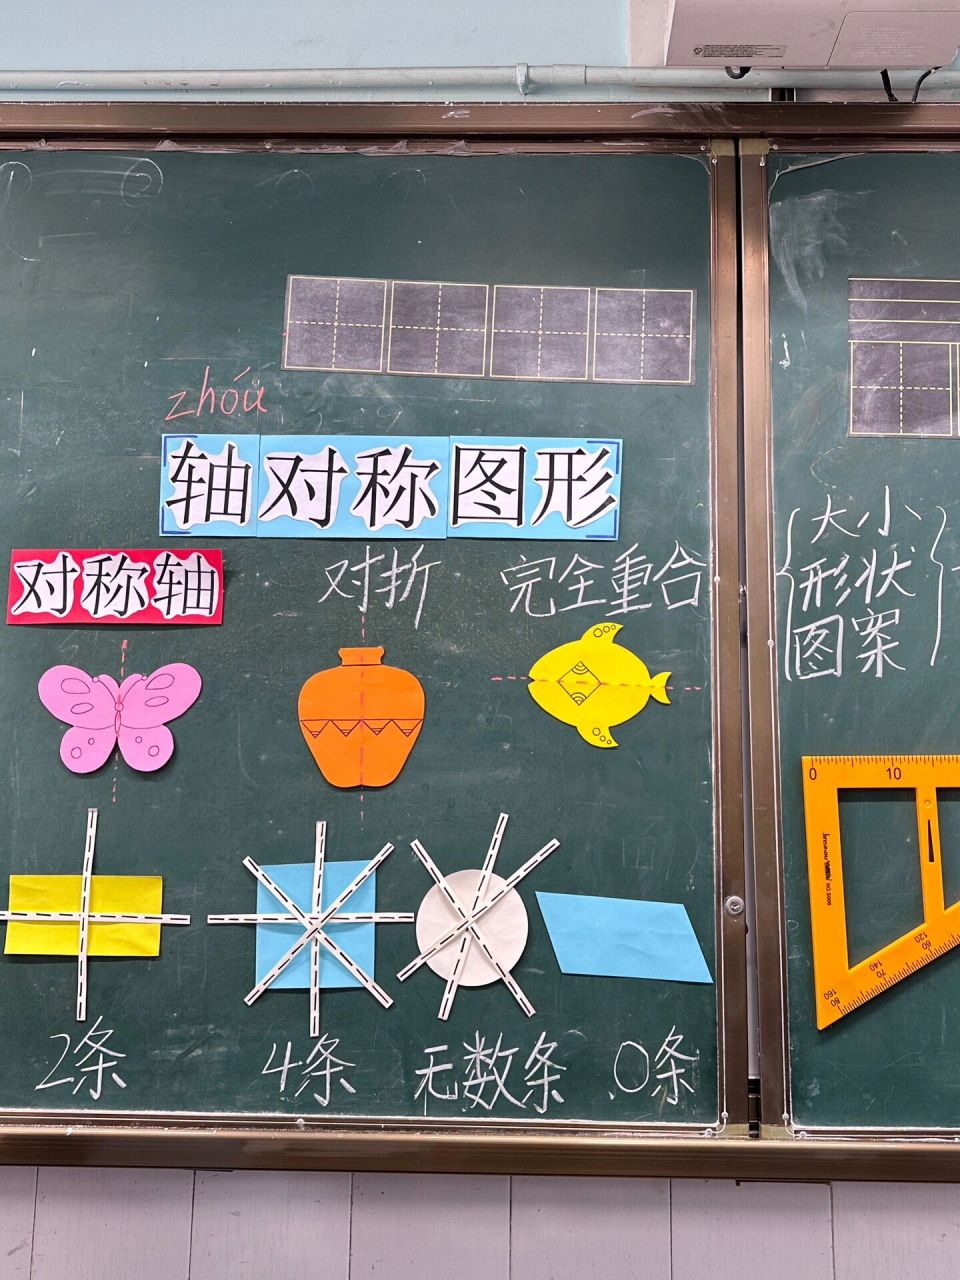 zhóu
轴对称图形
对称轴
对折
完全重合
大小
形状
图案
0 10
2条
4条
无数条
0条